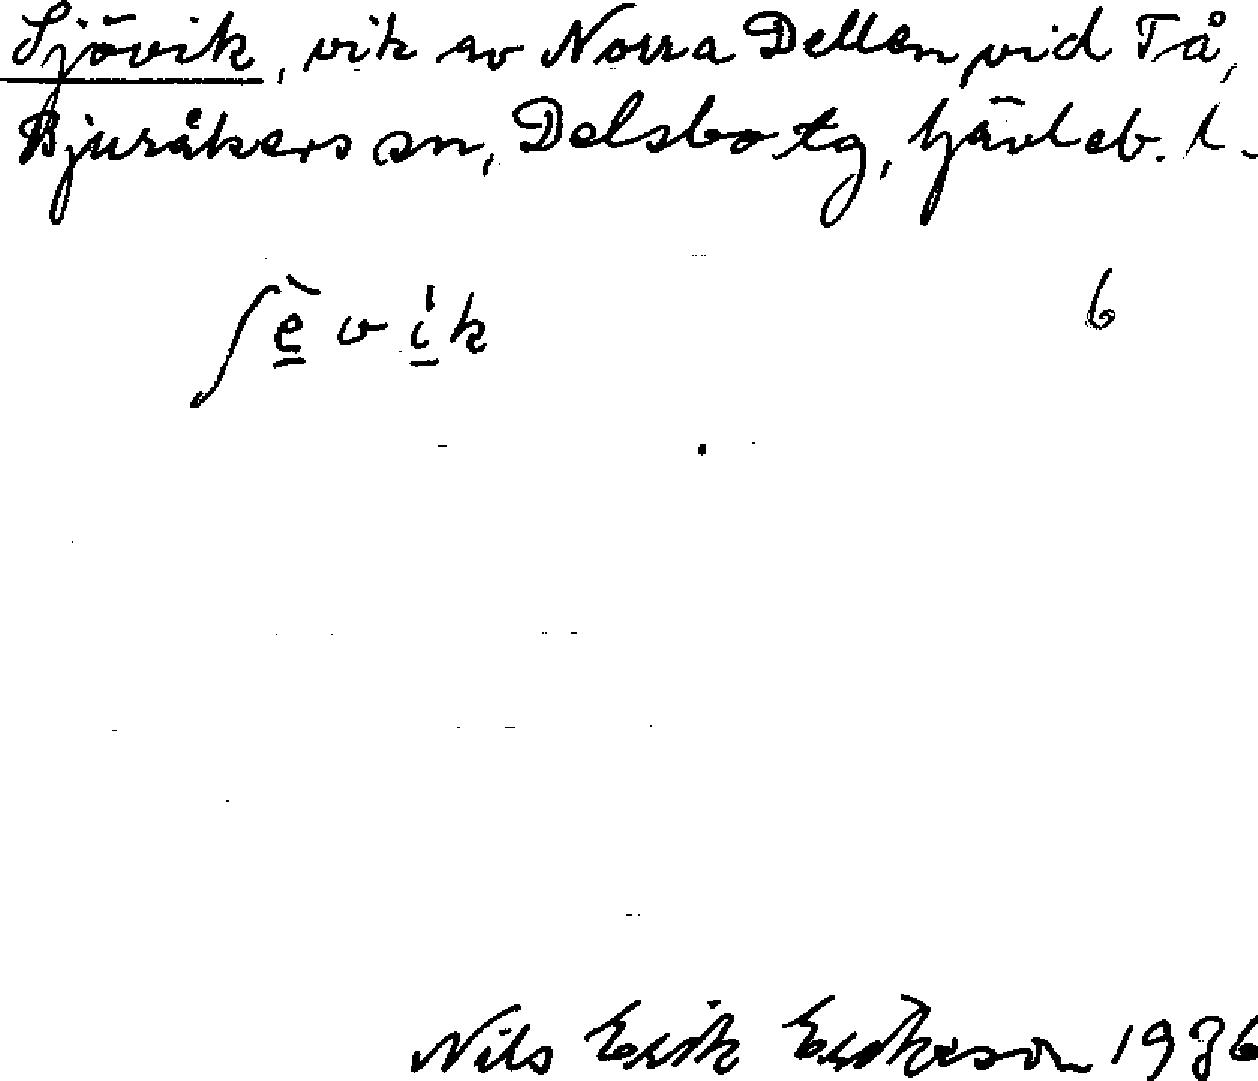 Sjövik, vik av Norra Dellen vid Tå,
Bjuråkers sn, Delsbo tg, Gävleb. l.
ʃè̲ v í̲ k 6
Nils Erik Eriksson 1936